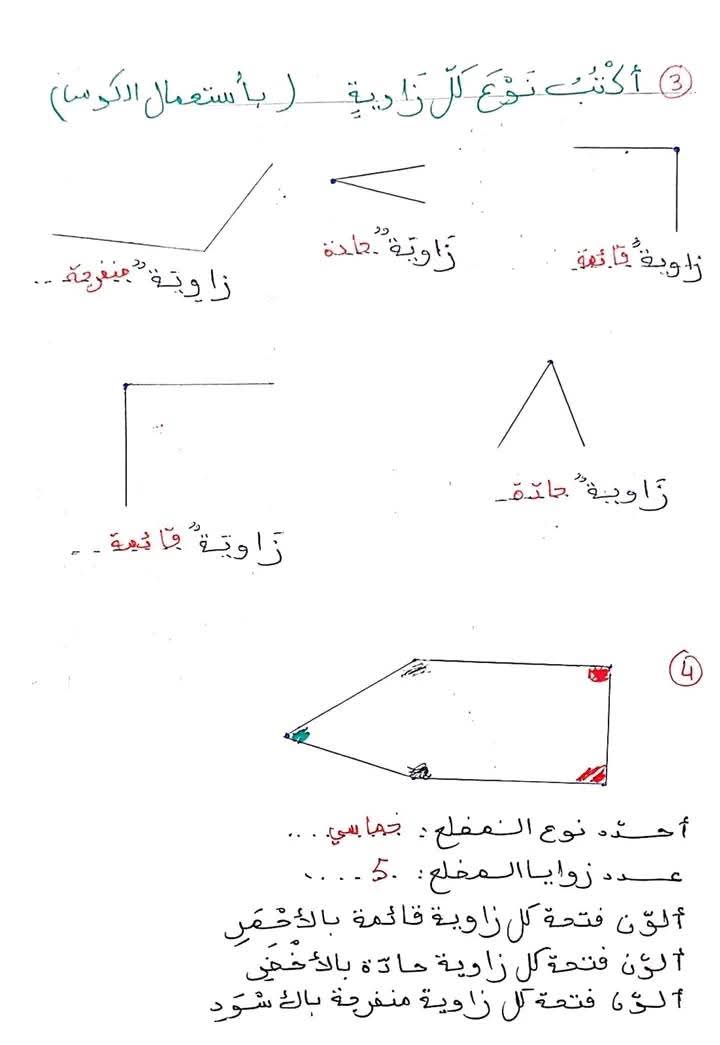 ③ أكْتُبُ نَوْعَ كَلّ زَاويةٍ (بأستعمال الكوس)
زاوية قائمة
زَاويَة حادة
زاويَة منفرجة ..
زَاويية حادّة
زَاويَة قائمة ..
④
أحدّد نوع المضلع: خماسي ...
عدد زوايا المضلع: 5 ....
ألوّن فتحة كل زاوية قائمة بالأحْمَرِ
ألوّن فتحة كل زاوية حادّة بالأخْضَرِ
ألوّن فتحة كل زاوية منفرجة بالأسْوَدِ